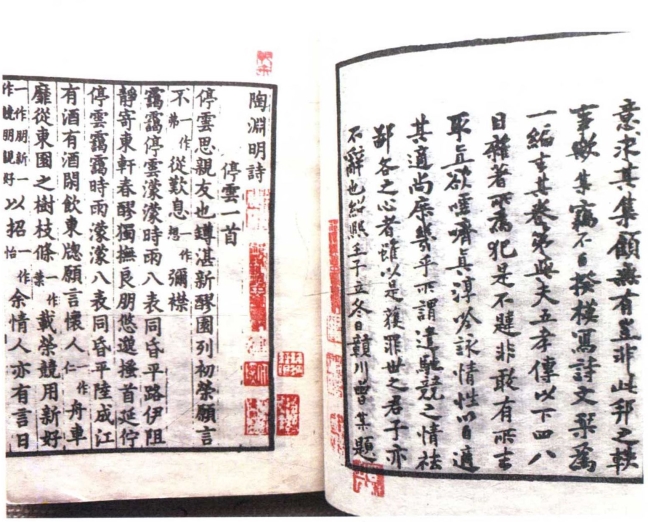 意求其集顧無有豈非此邦之軼
事歟集竊不自揆模寫詩文粲為
一編去其卷第與夫五孝傳以下四八
目雜著所為犯是不韙非敢有所去
取直欲嚅嚌真淳吟詠情性以自適
其適尚庶幾乎所謂遣馳競之情祛
鄙吝之心者雖以是獲罪世之君子亦
不辭也紹熙壬子立冬日贛川曾集題
陶淵明詩
停雲一首
停雲思親友也罇湛新醪園列初榮願言
不一作弗從歎息一作想彌襟
靄靄停雲濛濛時雨八表同昏平路伊阻
靜寄東軒春醪獨撫良朋悠邈搔首延佇
停雲靄靄時雨濛濛八表同昏平陸成江
有酒有酒閑飲東牎願言懷人一作仁舟車
靡從東園之樹枝條一作葉載榮競用新好
一作朋新一作競朋親好以招一作怡余情人亦有言日